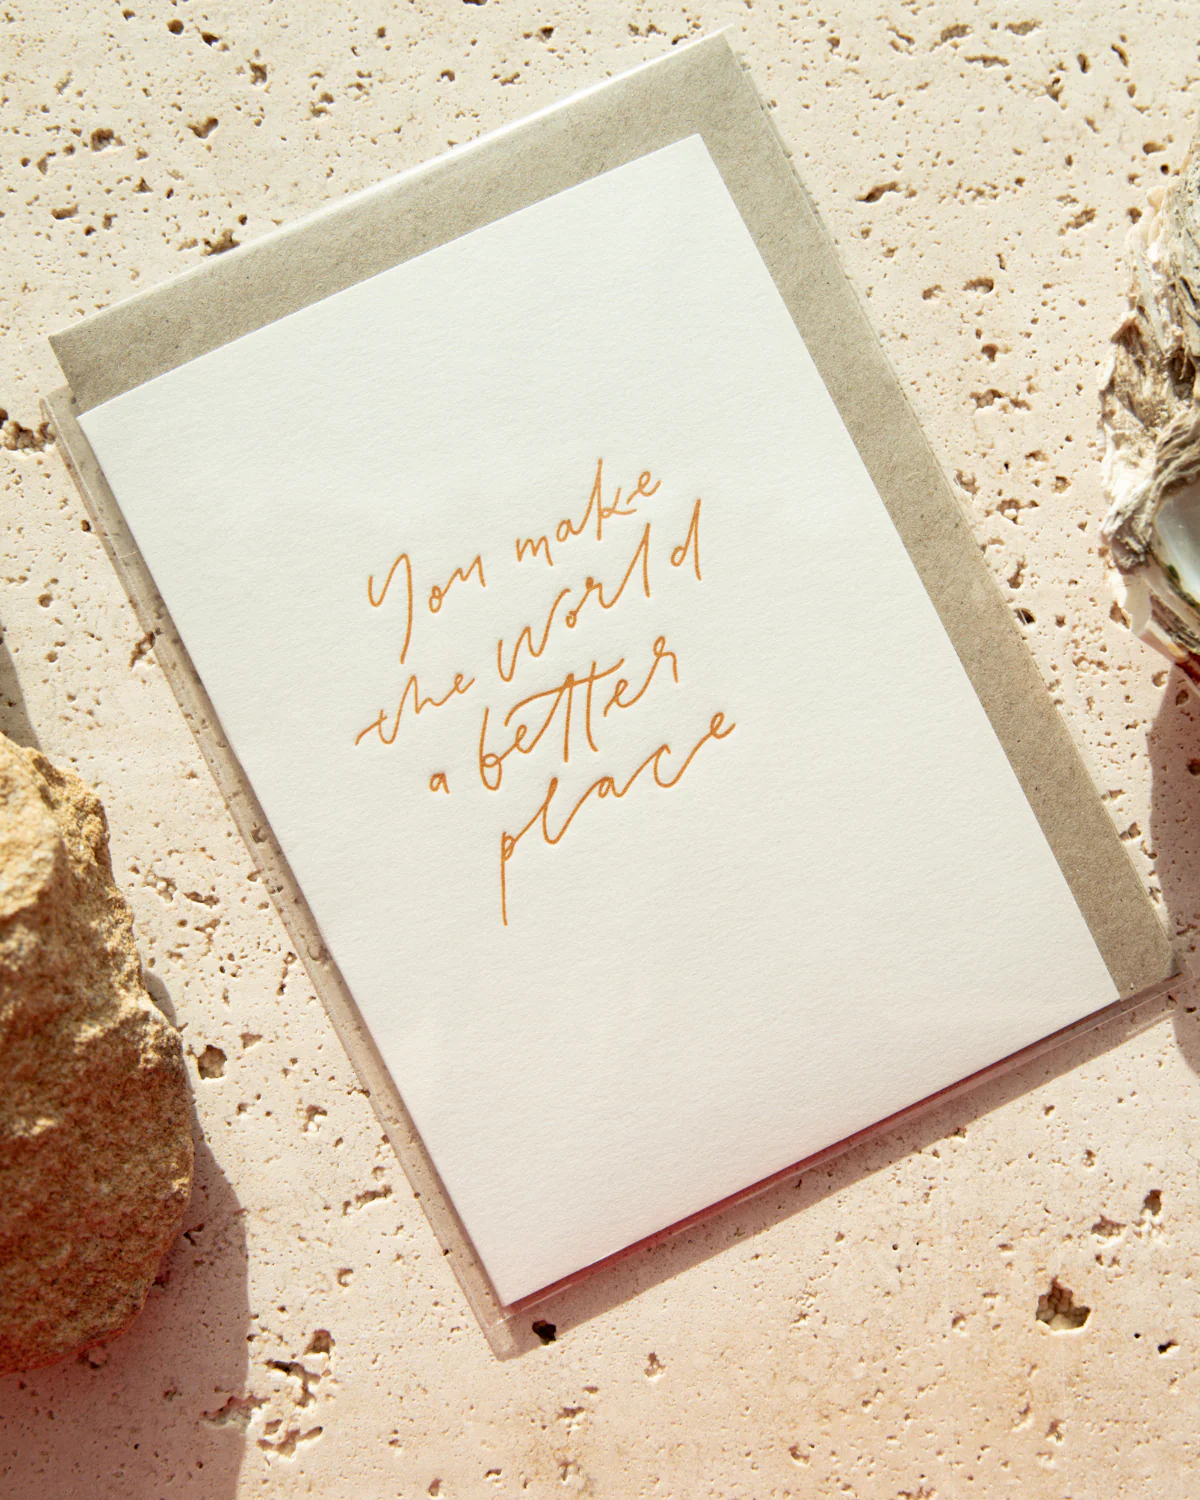 You make
the world
a better
place